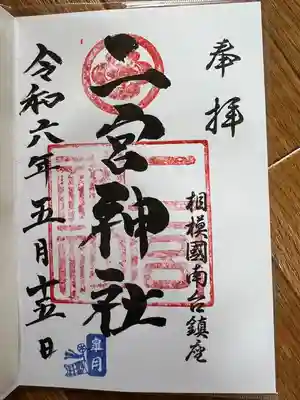 奉拝
相模國南台鎮座
二宮神社
令和六年五月十五日
皐月